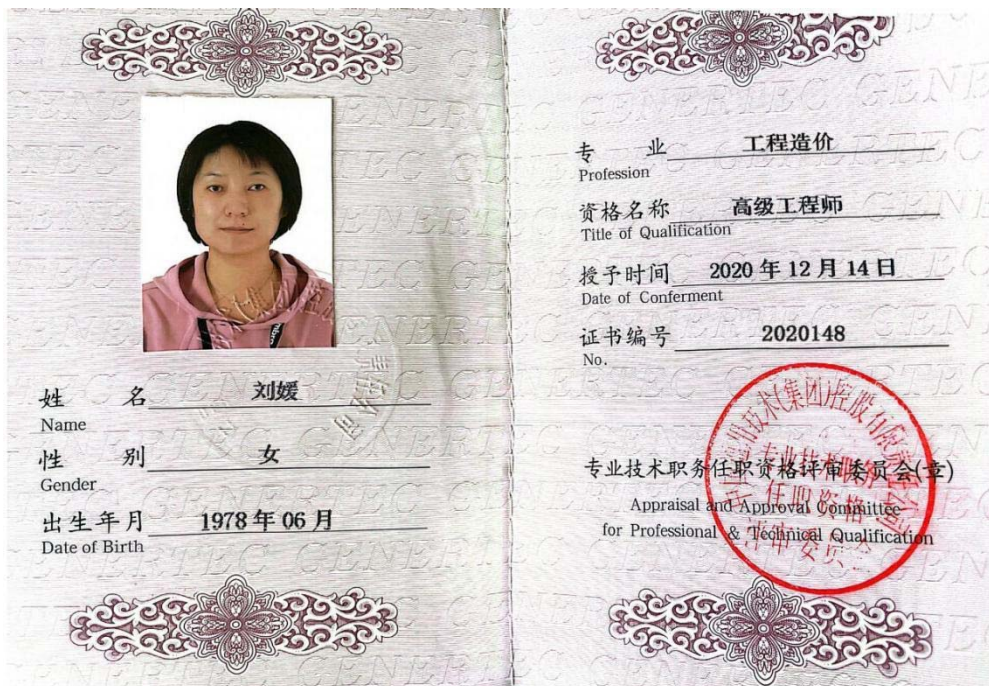 姓名 刘媛
Name
性别 女
Gender
出生年月 1978年06月
Date of Birth
专业 工程造价
Profession
资格名称 高级工程师
Title of Qualification
授予时间 2020年12月14日
Date of Conferment
证书编号 2020148
No.
专业技术职务任职资格评审委员会(章)
Appraisal and Approval Committee
for Professional & Technical Qualification
中国通用技术(集团)控股有限责任公司
专业技术职务
任职资格
评审委员会
GENERTEC